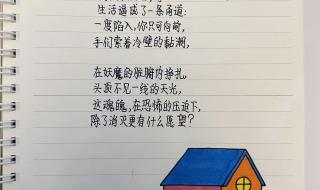 生活逼成了一条甬道:
一度陷入,你只可向前,
手们索着冷壁的黏潮,
在妖魔的脏腑内挣扎,
头顶不见一线的天光,
这魂魄,在恐怖的压迫下,
除了消灭更有什么愿望?